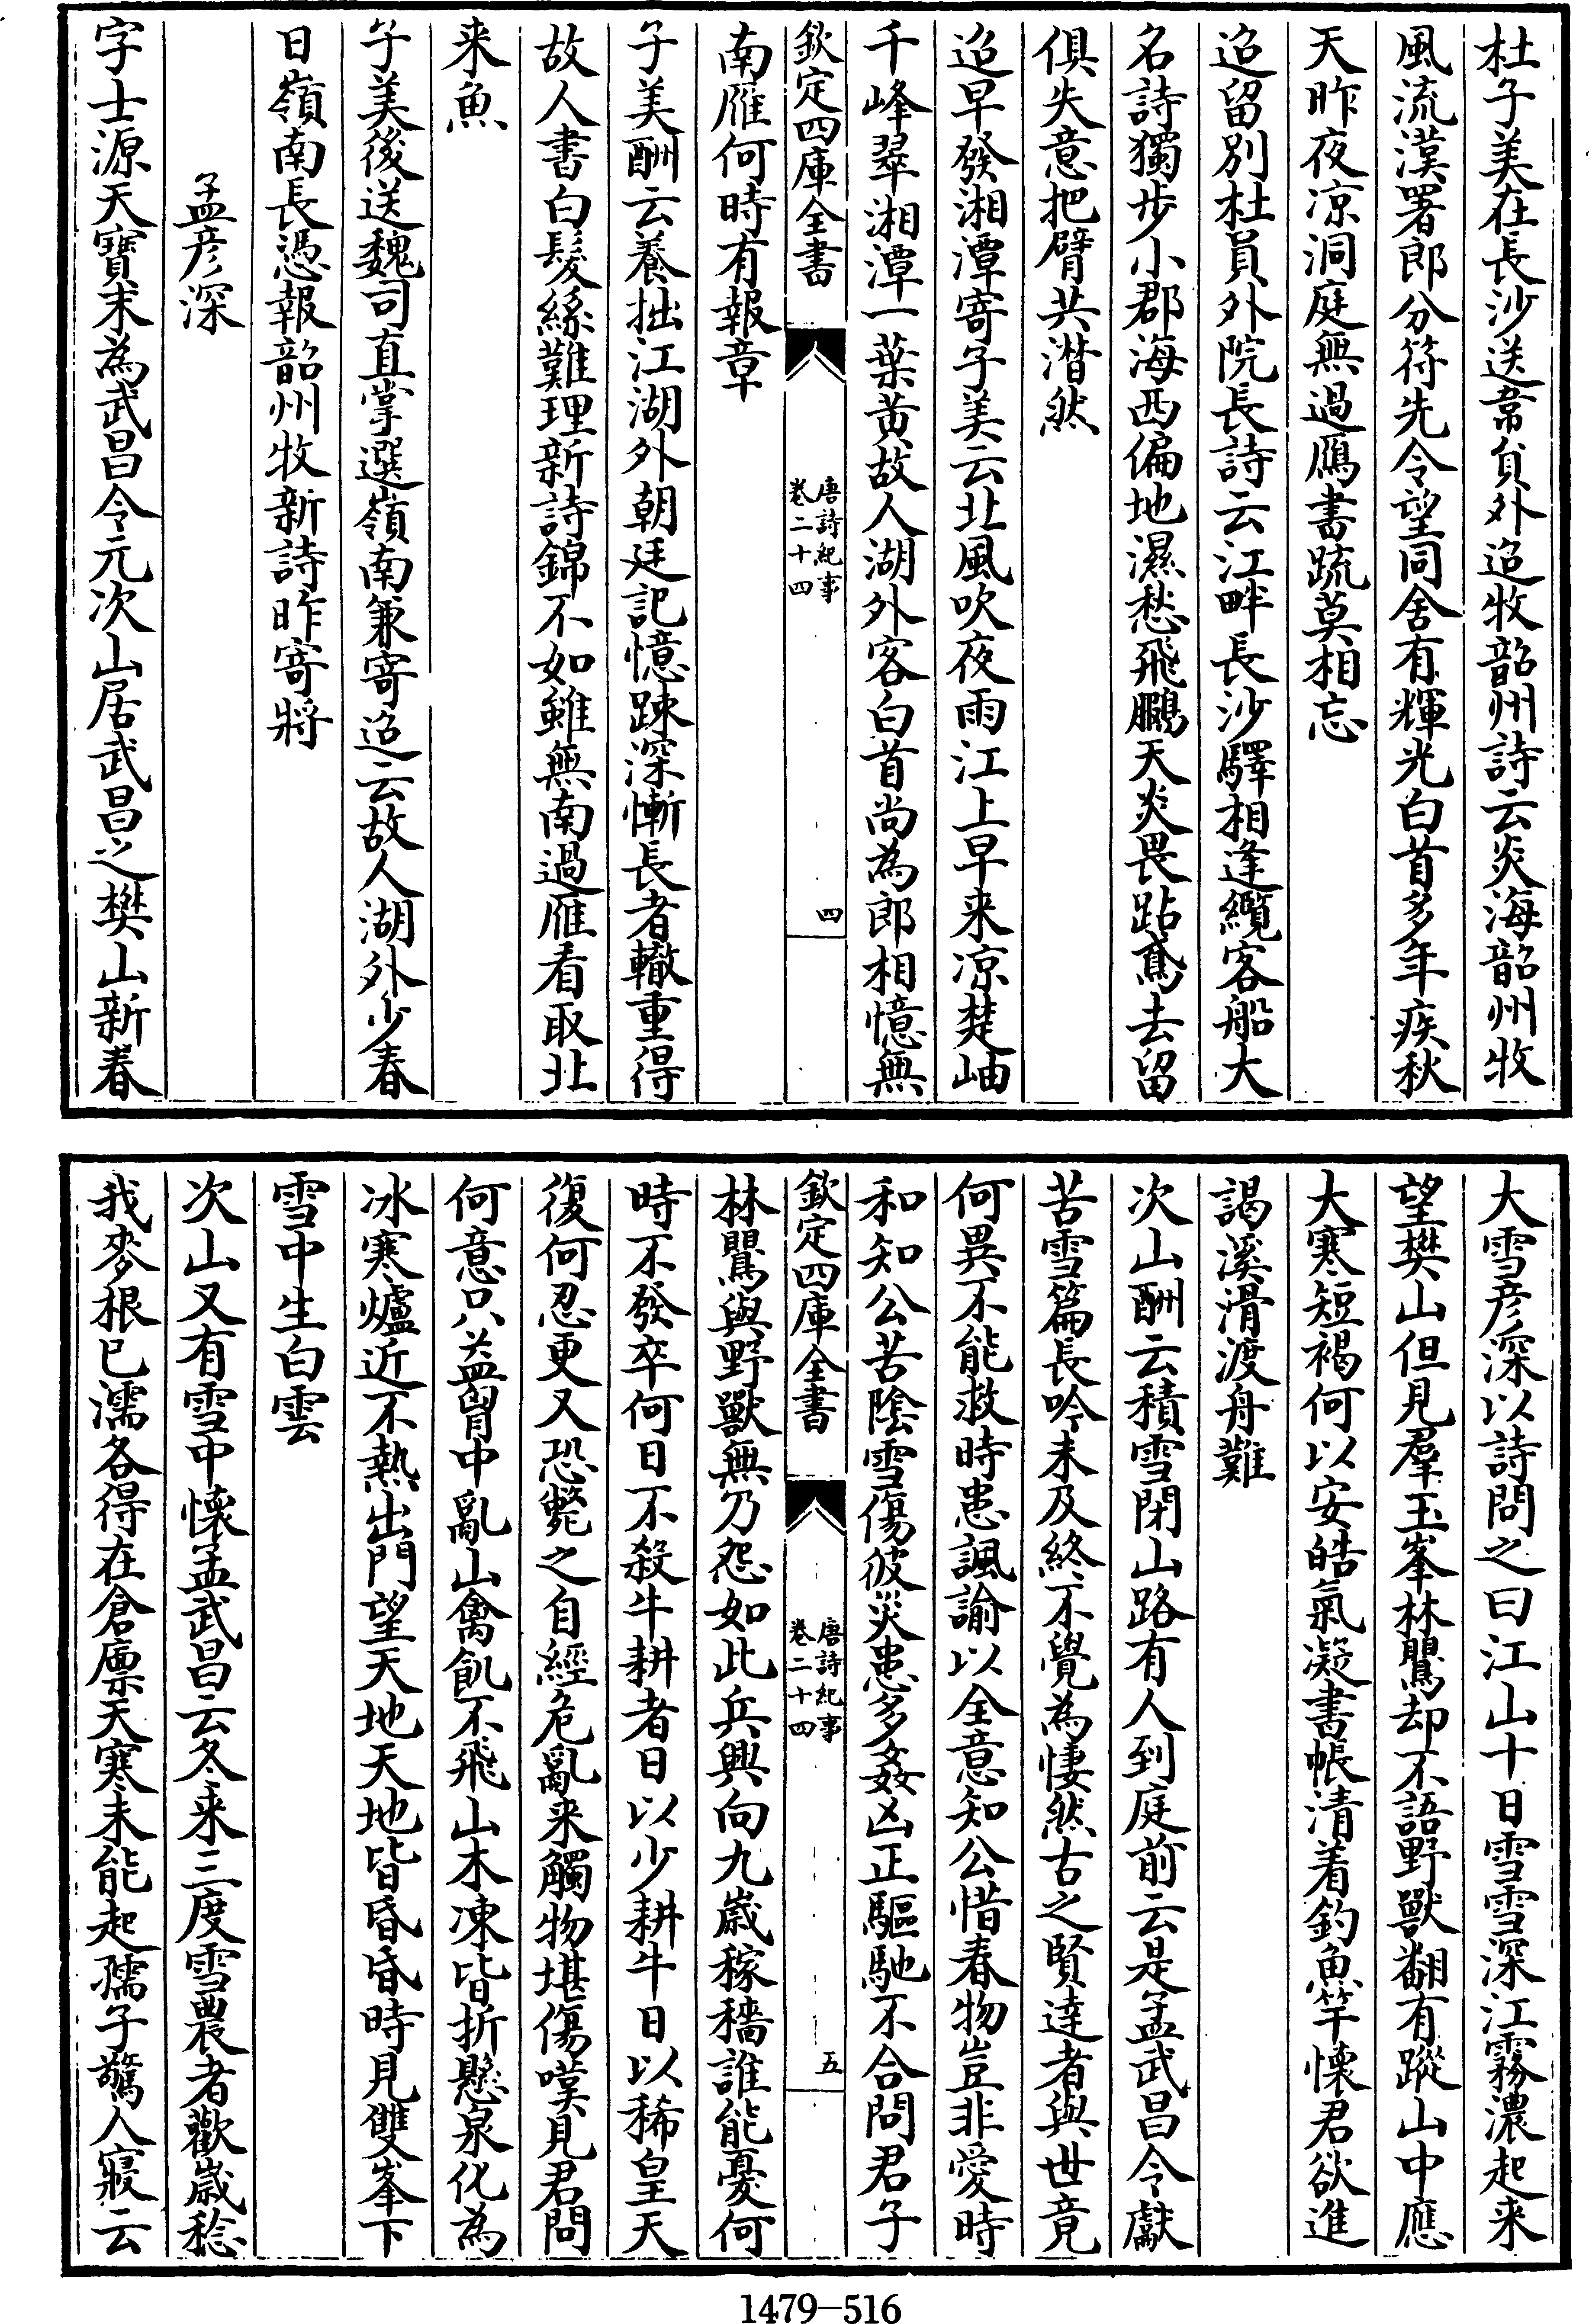 杜子美在長沙送韋負外迢牧韶州詩云炎海韶州牧
風流漢署郎分符先令望同舍有輝光白首多年疾秋
天昨夜凉洞庭無過鴈書疏莫相忘
迢留別杜員外院長詩云江畔長沙驛相逢纜客船大
名詩獨步小郡海西偏地濕愁飛鵩天炎畏跕鳶去留
俱失意把臂共潸然
迢早發湘潭寄子美云北風吹夜雨江上早来凉楚岫
千峰翠湘潭一葉黄故人湖外客白首尚為郎相憶無
欽定四庫全書
唐詩紀事
卷二十四
四
南雁何時有報章
子美酬云養拙江湖外朝廷記憶疎深慚長者轍重得
故人書白髮絲難理新詩錦不如雖無南過雁看取北
来魚
子美後送魏司直掌選嶺南兼寄迢云故人湖外少春
日嶺南長憑報韶州牧新詩昨寄將
孟彦深
字士源天寶末為武昌令元次山居武昌之樊山新春
大雪彦深以詩問之曰江山十日雪雪深江霧濃起来
望樊山但見羣玉峯林鸎却不語野獸翻有蹤山中應
大寒短褐何以安皓氣凝書帳清着釣魚竿懷君欲進
謁溪滑渡舟難
次山酬云積雪閉山路有人到庭前云是孟武昌令獻
苦雪篇長吟未及終不覺為悽然古之賢達者與世竟
何異不能救時患諷諭以全意知公惜春物豈非愛時
和知公苦陰雪傷彼災患多姦凶正驅馳不合問君子
欽定四庫全書
唐詩紀事
卷二十四
五
林鸎與野獸無乃怨如此兵興向九歳稼穡誰能憂何
時不發卒何日不殺牛耕者日以少耕牛日以稀皇天
復何忍更又恐斃之自經危亂来觸物堪傷嘆見君問
何意只益胷中亂山禽飢不飛山木凍皆折懸泉化為
冰寒爐近不熱出門望天地天地皆昏昏時見雙峯下
雪中生白雲
次山又有雪中懷孟武昌云冬来三度雪農者歡歳稔
我麥根已濡各得在倉廩天寒未能起孺子驚人寢云
1479-516